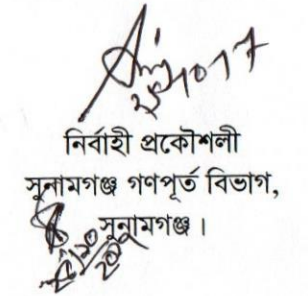 নির্বাহী প্রকৌশলী
সুনামগঞ্জ গণপূর্ত বিভাগ,
সুনামগঞ্জ।